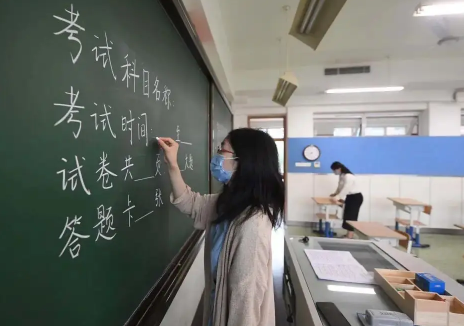 考试科目名称:
考试时间: 至___
试卷共__页__大题
答题卡__张